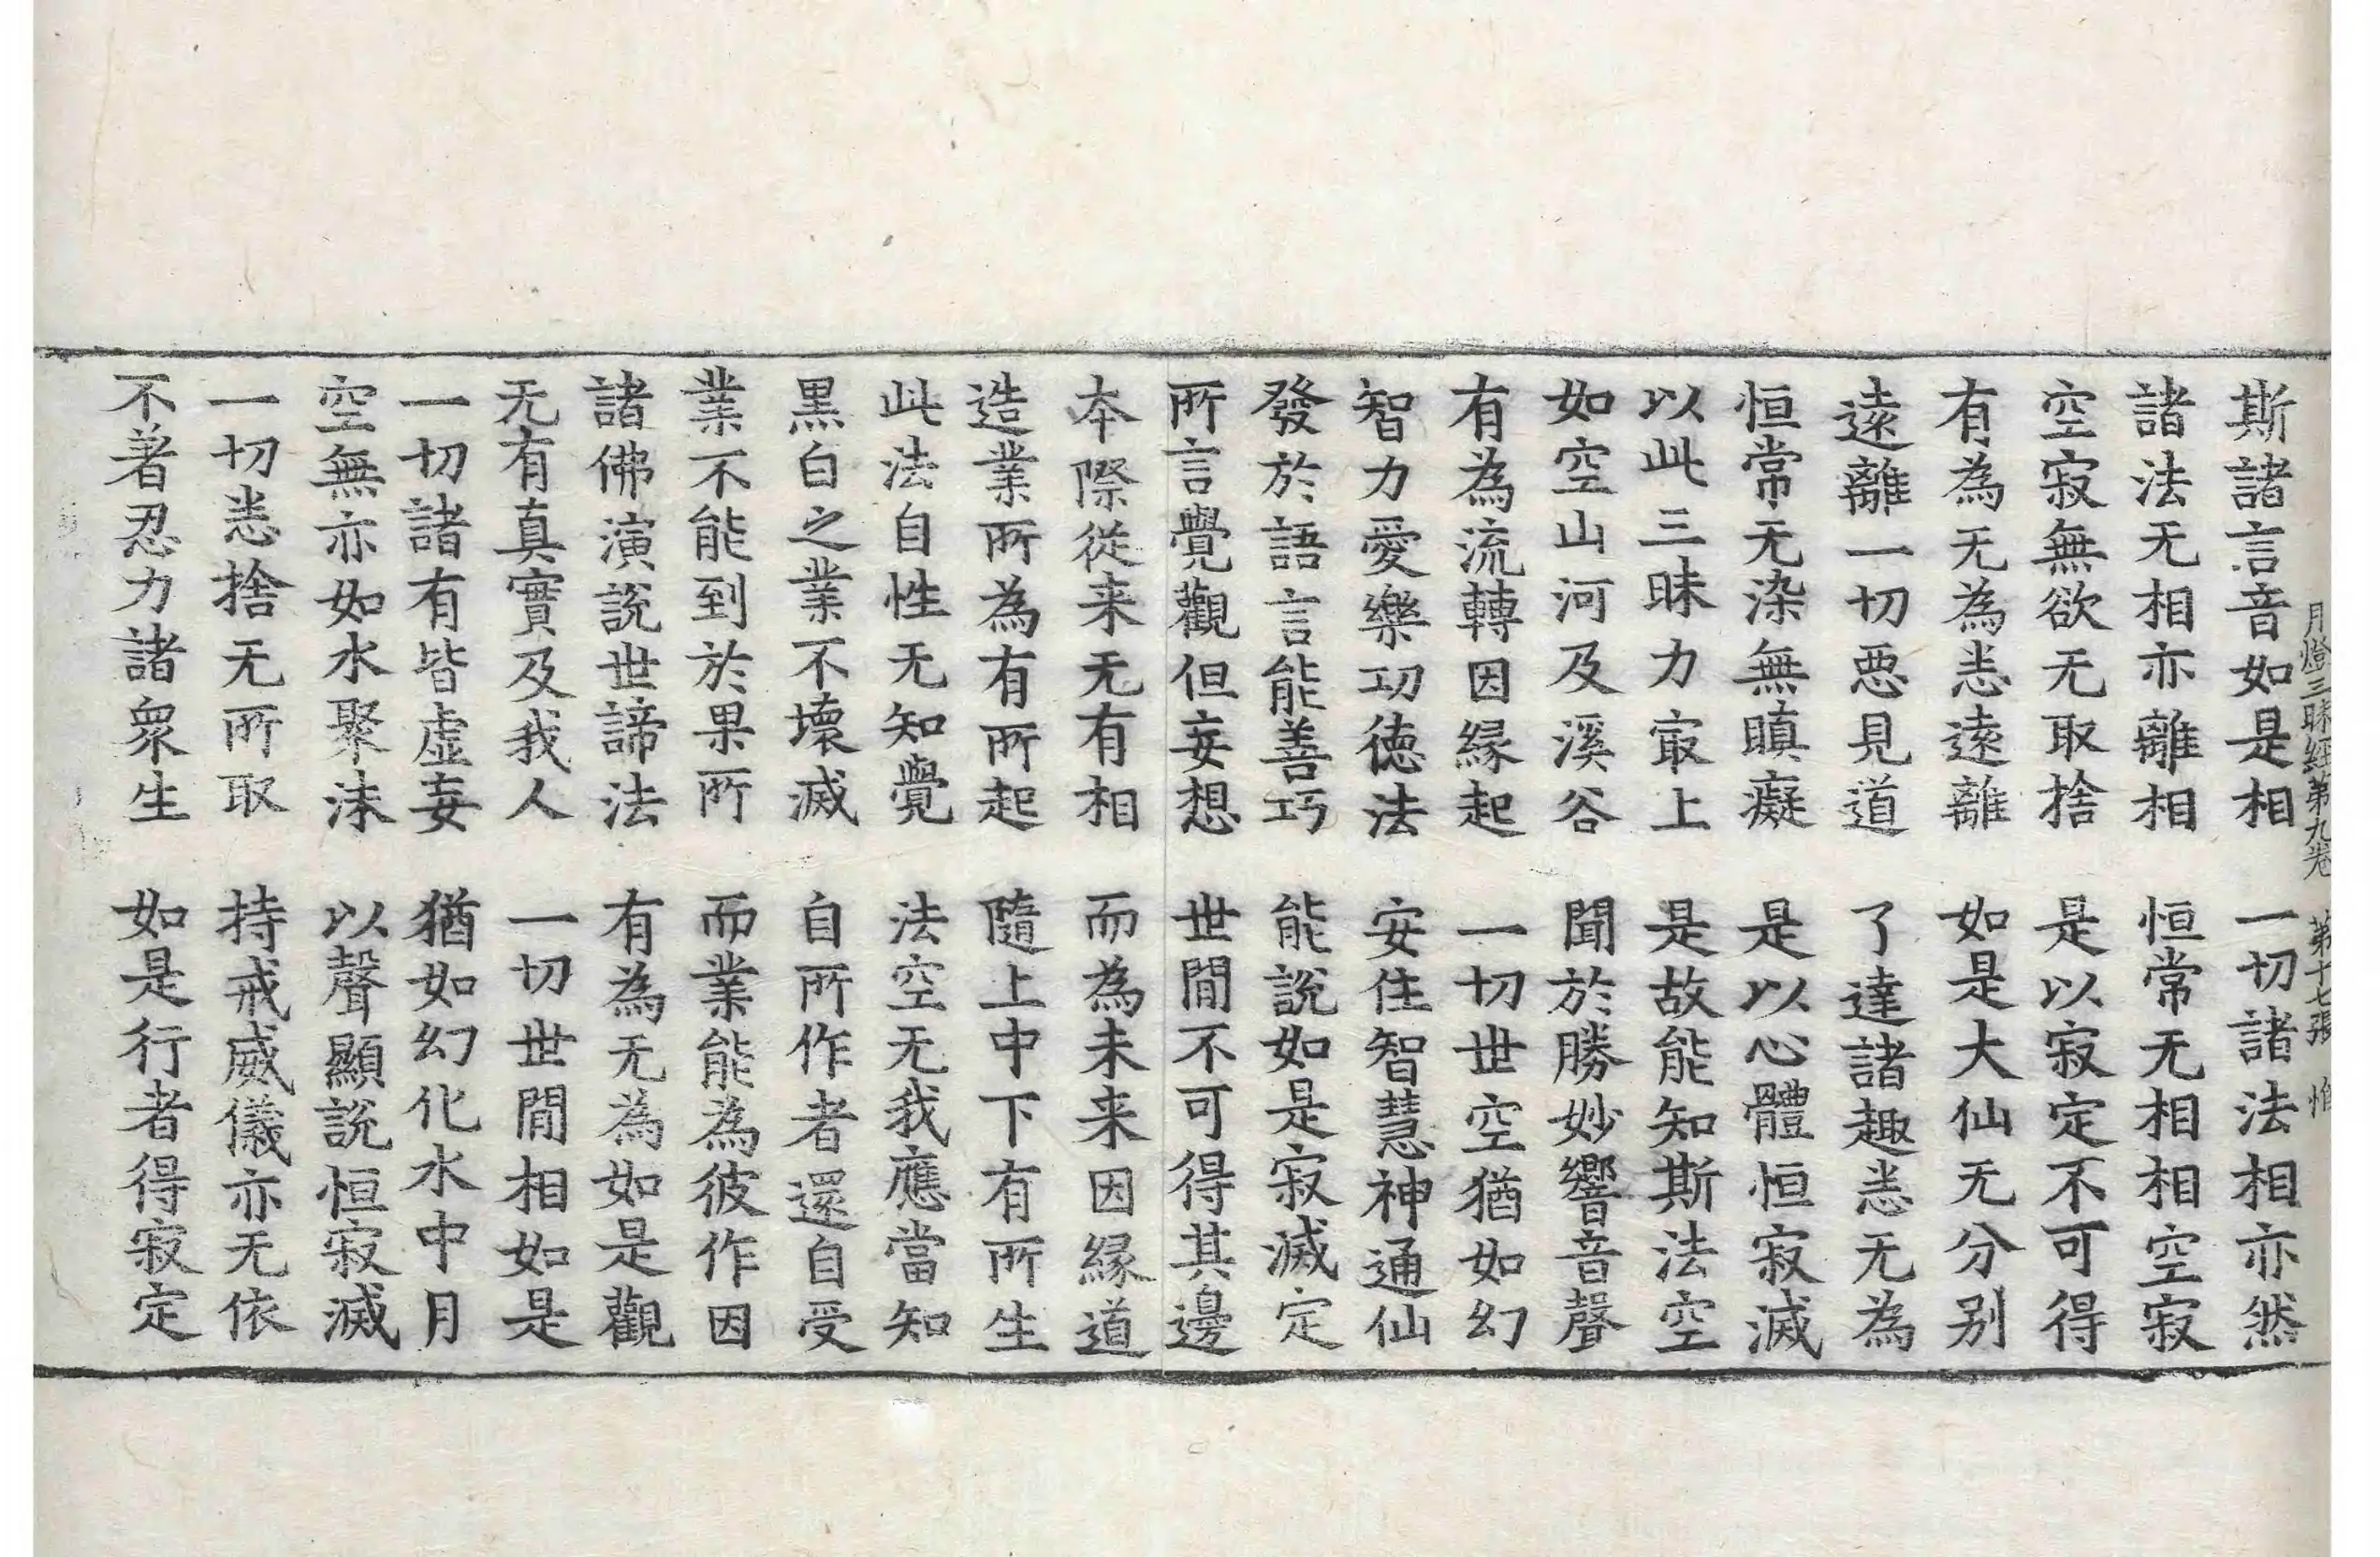 月燈三昧經第九卷 第十七張 惟
斯諸言音如是相 一切諸法相亦然
諸法无相亦離相 恒常无相相空寂
空寂無欲无取捨 是以寂定不可得
有為无為恙遠離 如是大仙无分别
遠離一切惡見道 了達諸趣恙无為
恒常无染無瞋癡 是以心體恒寂滅
以此三昧力㝡上 是故能知斯法空
如空山河及溪谷 聞於勝妙響音聲
有為流轉因緣起 一切世空猶如幻
智力愛樂功德法 安住智慧神通仙
發於語言能善巧 能說如是寂滅定
所言覺觀但妄想 世間不可得其邊
本際從来无有相 而為未来因緣道
造業所為有所起 隨上中下有所生
此法自性无知覺 法空无我應當知
黒白之業不壞滅 自所作者還自受
業不能到於果所 而業能為彼作因
諸佛演說世諦法 有為无為如是觀
无有真實及我人 一切世間相如是
一切諸有皆虛妄 猶如幻化水中月
空無亦如水聚沫 以聲顯說恒寂滅
一切恙捨无所取 持戒威儀亦无依
不著忍力諸衆生 如是行者得寂定